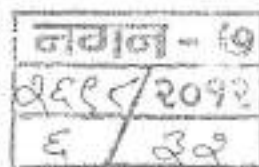 नगन - ७
२६९८/२०१२
६/३२